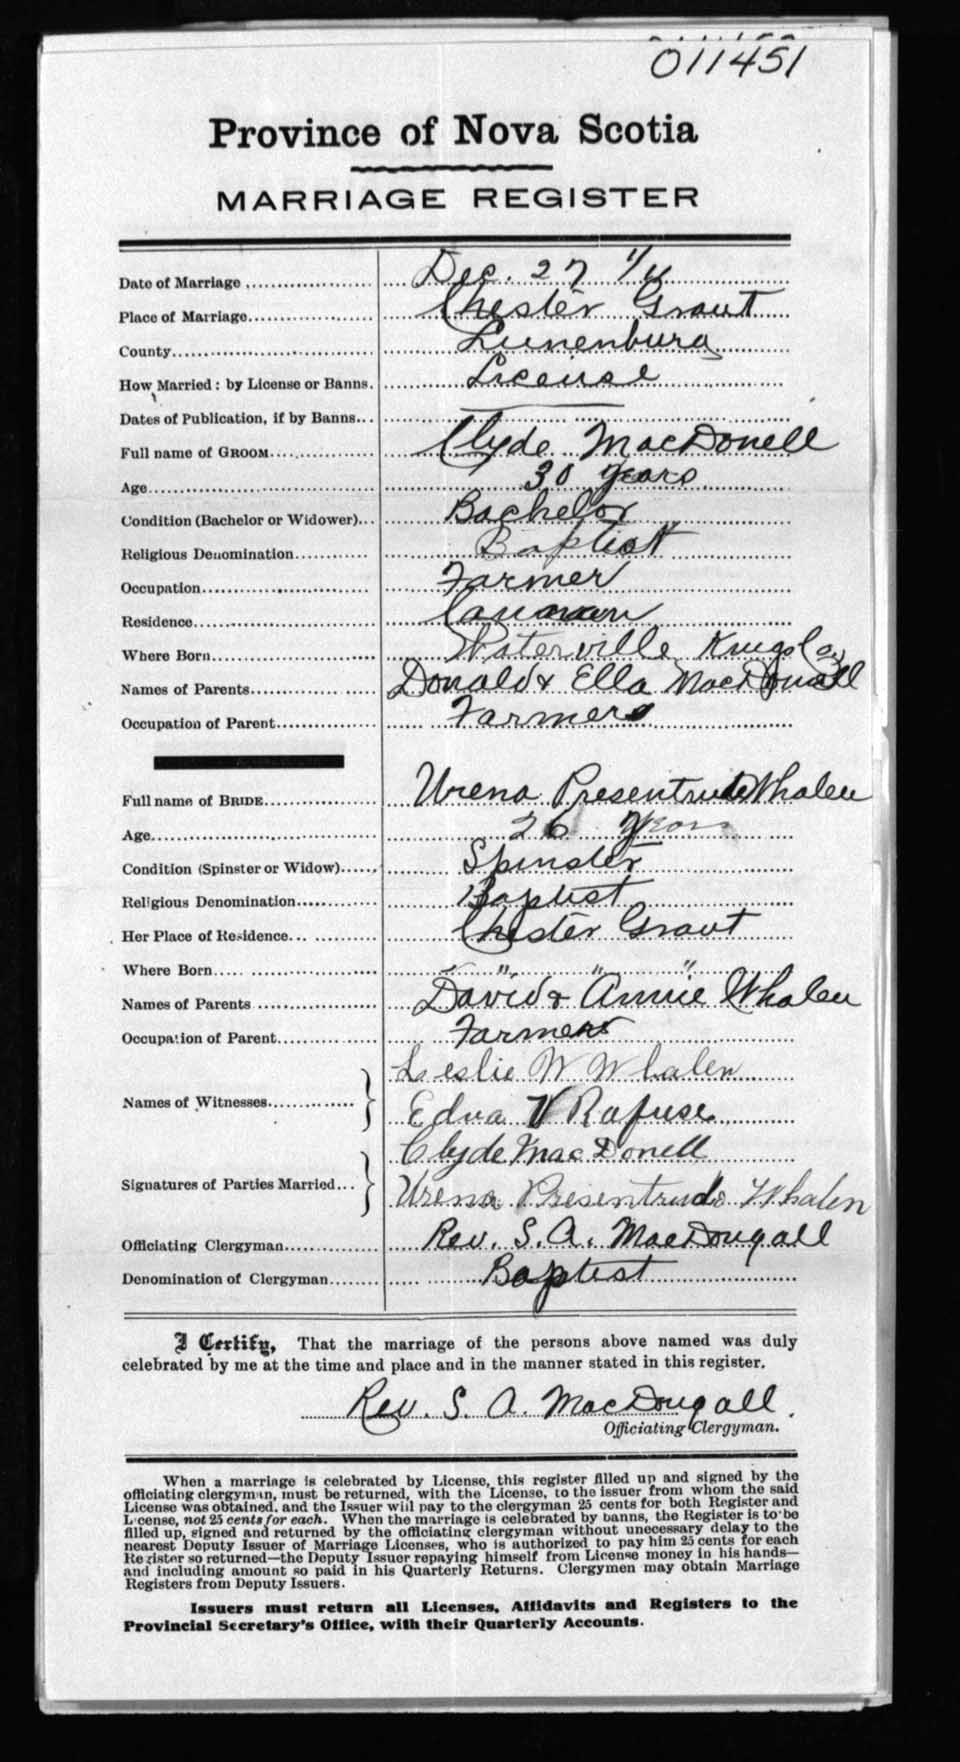 011451
Province of Nova Scotia
MARRIAGE REGISTER
Date of Marriage Dec. 27
Place of Marriage Chester Grant
County Lunenburg
How Married: by License or Banns. License
Dates of Publication, if by Banns
Full name of GROOM Clyde MacDonell
Age 30 years
Condition (Bachelor or Widower) Bachelor
Religious Denomination Baptist
Occupation Farmer
Residence
Where Born Waterville Kings Co.
Names of Parents Donald & Ella MacDonell
Occupation of Parent Farmer
Full name of BRIDE Urena Presentrude Whalen
Age 26 years
Condition (Spinster or Widow) Spinster
Religious Denomination Baptist
Her Place of Residence Chester Grant
Where Born " " "
Names of Parents David & Annie Whalen
Occupation of Parent Farmer
Names of Witnesses Leslie W Whalen
Edna V Rafuse
Signatures of Parties Married Clyde MacDonell
Urena Presentrude Whalen
Officiating Clergyman Rev. S. A. MacDougall
Denomination of Clergyman Baptist
I Certify, That the marriage of the persons above named was duly
celebrated by me at the time and place and in the manner stated in this register.
Rev. S. A. MacDougall.
Officiating Clergyman.
When a marriage is celebrated by License, this register filled up and signed by the
officiating clergyman, must be returned, with the License, to the issuer from whom the said
License was obtained. and the Issuer will pay to the clergyman 25 cents for both Register and
License, not 25 cents for each. When the marriage is celebrated by banns, the Register is to be
filled up, signed and returned by the officiating clergyman without unecessary delay to the
nearest Deputy Issuer of Marriage Licenses, who is authorized to pay him 25 cents for each
Register so returned—the Deputy Issuer repaying himself from License money in his hands—
and including amount so paid in his Quarterly Returns. Clergymen may obtain Marriage
Registers from Deputy Issuers.
Issuers must return all Licenses, Affidavits and Registers to the
Provincial Secretary's Office, with their Quarterly Accounts.